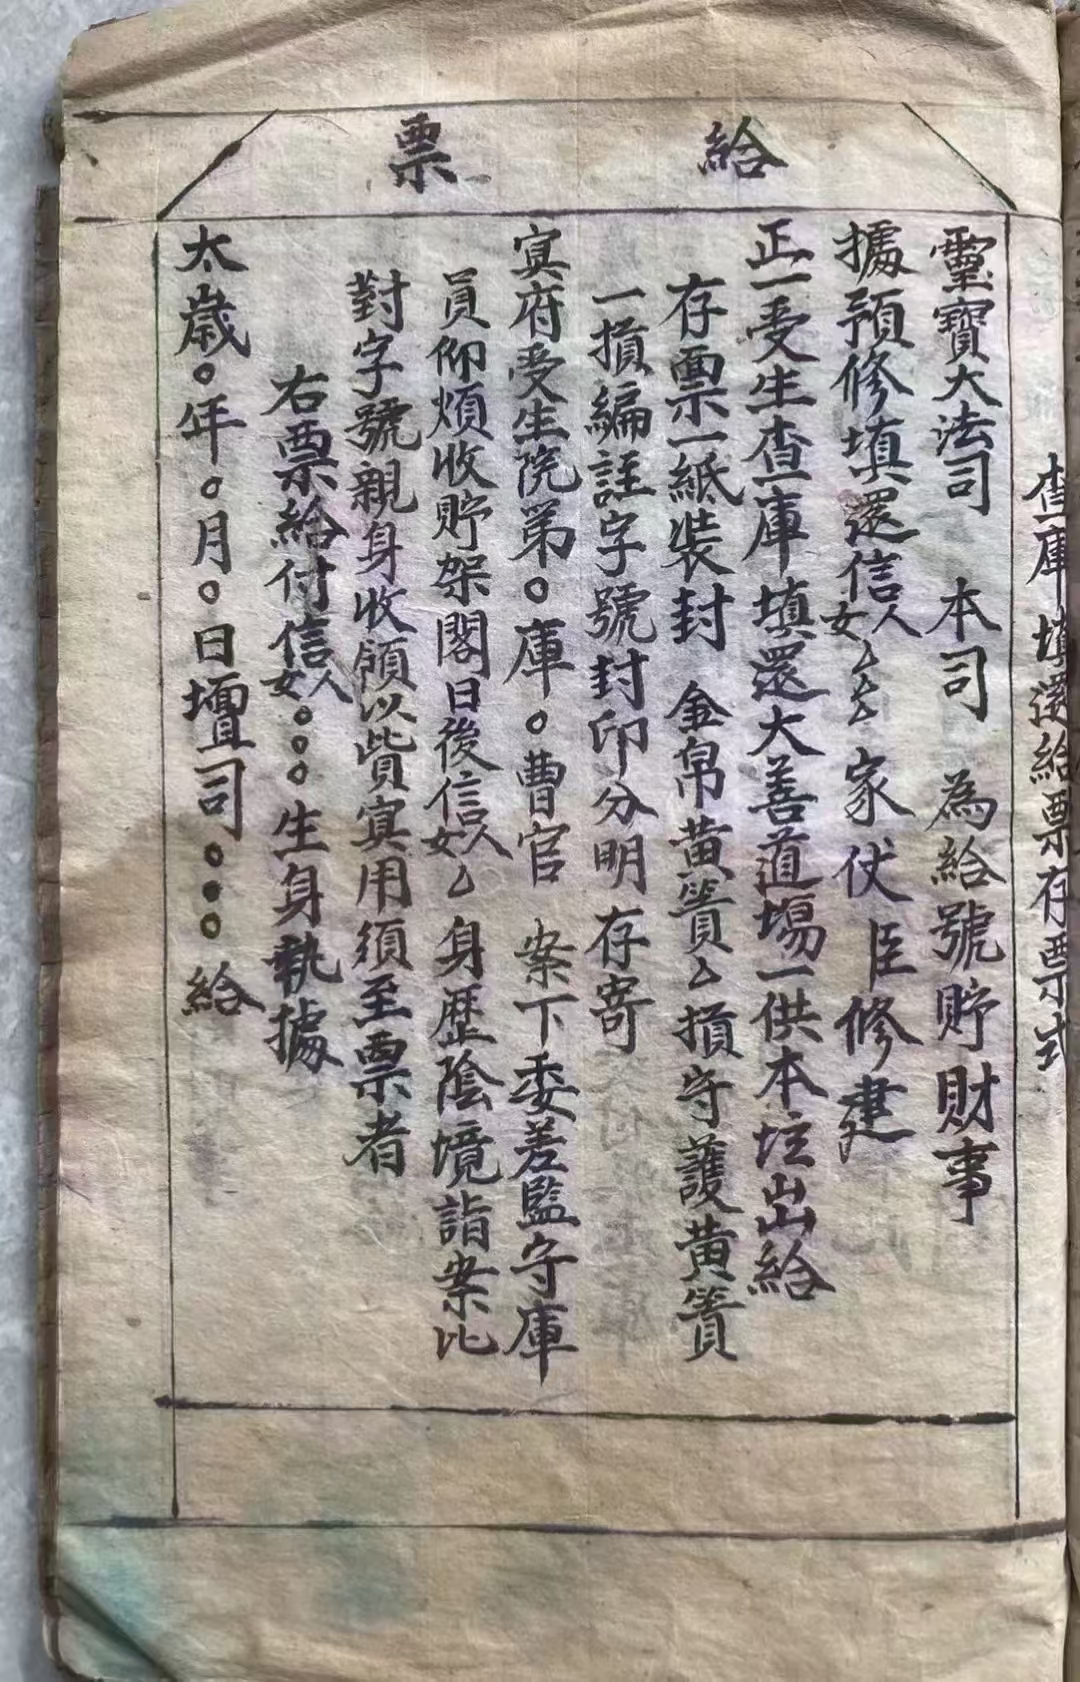 查庫填還給票存票式
給票
靈寶大法司 本司 為給號貯財事
據預修填還信人女厶厶 家伏臣修建
正一受生查庫填還大善道場一供本坛出給
存票一紙裝封 金帛黄簣厶損守護黄簣
一損編註字號封印分明 存寄
冥府受生院第〇庫〇曹官 案下委差監守庫
員仰煩收貯架閣日後信人女厶 身歷陰境詣案比
對字號親身收領以貲冥用須至票者
右票給付信人女〇〇〇生身執據
太歲〇年〇月〇日壇司〇〇〇 給